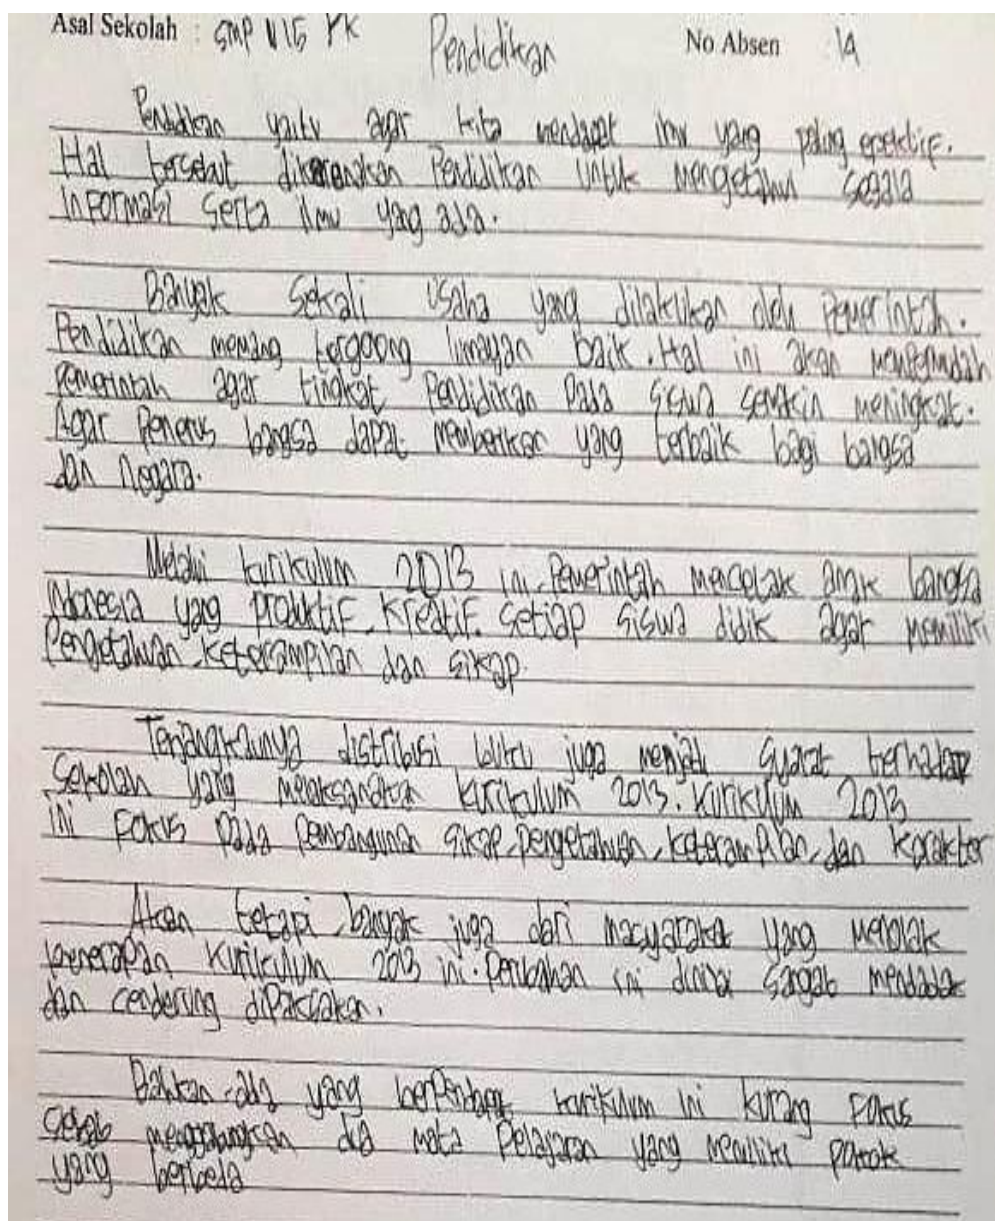 Asal Sekolah : SMP N 15 YK
Pendidikan
No Absen : 14
Pendidikan yaitu agar kita mendapat ilmu yang paling epektif.
Hal tersebut dikarenakan Pendidikan untuk mengetahui segala
informasi serta ilmu yang ada.
Banyak sekali usaha yang dilakukan oleh Pemerintah.
Pendidikan memang tergolong lumayan baik. Hal ini akan mempermudah
pemerintah agar tingkat Pendidikan Pada siswa semakin meningkat.
Agar Penerus bangsa dapat memberikan yang terbaik bagi bangsa
dan Negara.
Melalui kurikulum 2013 ini Pemerintah mencetak anak bangsa
Indonesia yang produktif, kreatif. Setiap siswa didik agar memiliki
Pengetahuan, keterampilan dan sikap.
distribusi buku juga menjadi syarat terhadap
Sekolah yang melaksanakan kurikulum 2013. Kurikulum 2013
ini Fokus Pada Pembangunan sikap, pengetahuan, keterampilan, dan Karakter
Akan tetapi, banyak juga dari masyarakat yang menolak
penerapan kurikulum 2013 ini. Perubahan ini dinilai sangat mendadak
dan cenderung dipaksakan.
Bahkan ada yang berpendapat kurikulum ini kurang Fokus
sebab menggabungkan dua mata Pelajaran yang memiliki pokok
yang berbeda